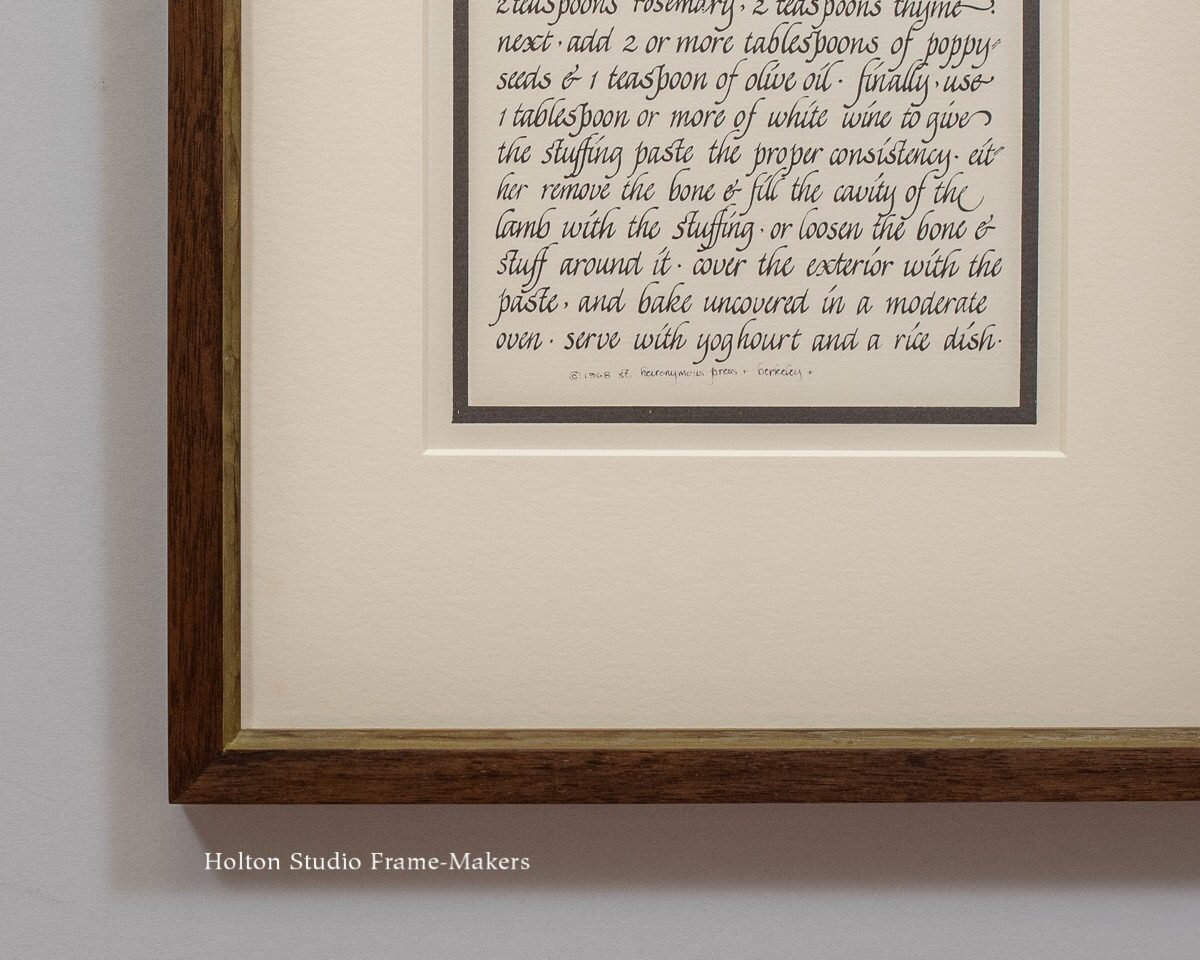 2 teaspoons rosemary, 2 teaspoons thyme.
next, add 2 or more tablespoons of poppy-
seeds & 1 teaspoon of olive oil. finally, use
1 tablespoon or more of white wine to give
the stuffing paste the proper consistency. eit-
her remove the bone & fill the cavity of the
lamb with the stuffing, or loosen the bone &
stuff around it. cover the exterior with the
paste, and bake uncovered in a moderate
oven. serve with yoghourt and a rice dish.
© 1968 st. heironymous press + berkeley +
Holton Studio Frame-Makers